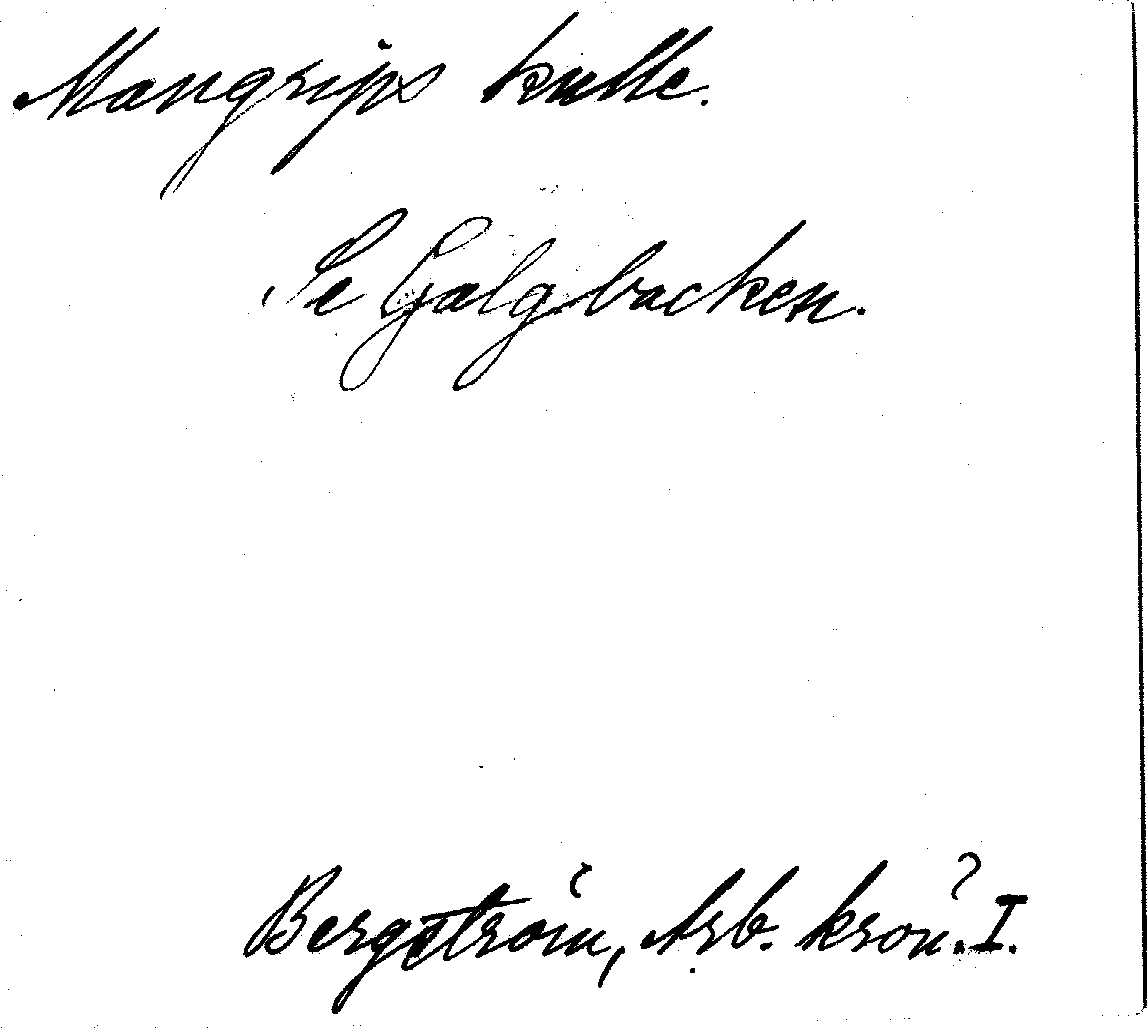 Mangrips kulle.
Se Galgbacken.
Bergström, Arb. krön. I.